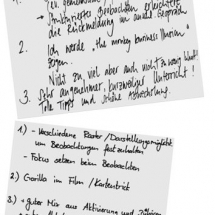 1.
→ Strukturiertes Beobachten erleichtert
die Rückmeldung im anschl. Gespräch
2. Ich werde "the monkey business Illusion"
zeigen.
Nicht zu viel aber auch nicht zu wenig
3. Sehr angenehmer, kurzweiliger Unterricht!
Tolle Tipps und schöne Abwechslung.
1.) - Verschiedene Raster / Darstellungsmöglichk.
um Beobachtungen festzuhalten
- Fokus setzen beim Beobachten
2) Gorilla im Film / Kartentrick
3.) + guter Mix aus Aktivierung und